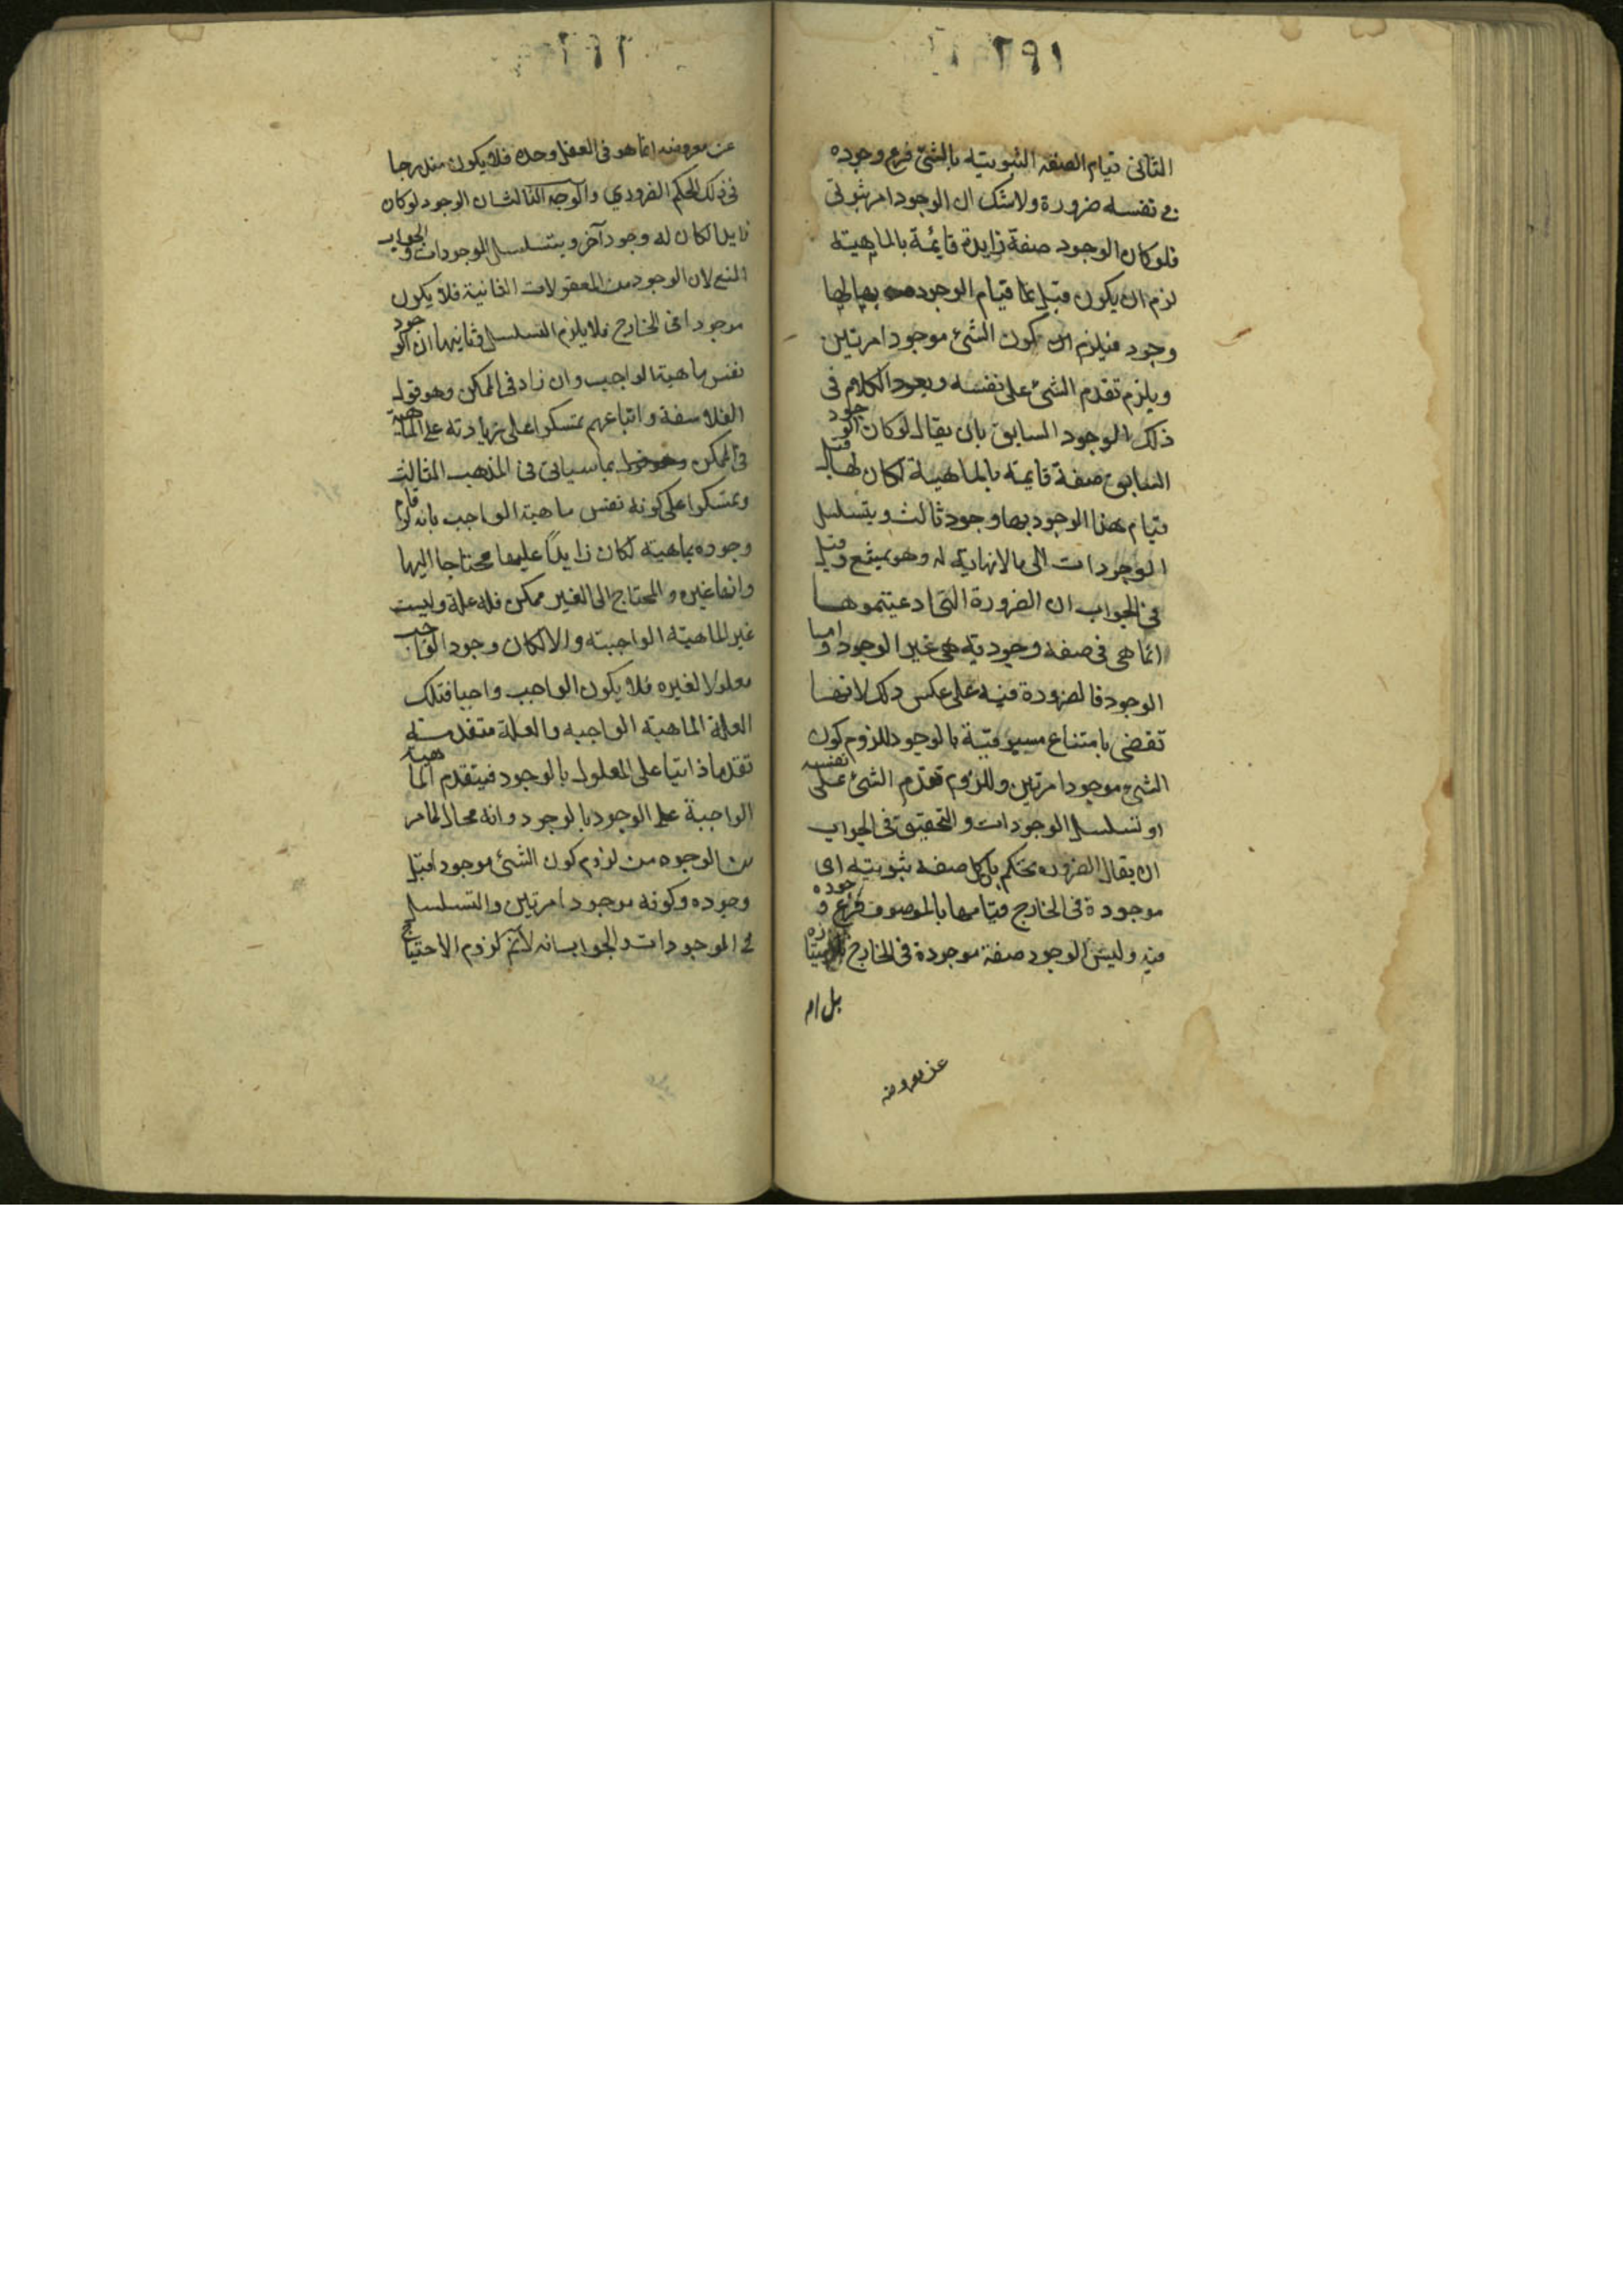 ٢٩١
الثانى قيام الصفه الثبوتيه بالشئ فرع وجوده
فى نفسه ضرورة ولا شك ان الوجود امر ثبوتى
فلو كان الوجود صفة زايدة قايمة بالماهية
لزم ان يكون قبل قيام الوجود بها لها
وجود فيلزم ان يكون الشئ موجودا مرتين
ويلزم تقدم الشئ على نفسه ويعود الكلام فى
ذلك الوجود السابق بان يقال لو كان الوجود
السابق صفة قايمة بالماهية لكان لها قبل
قيام هذا الوجود بها وجود ثالث ويتسلسل
الوجودات الى ما لا نهاية له وهو ممتنع وقيل
فى الجواب ان الضرورة التى ادعيتموها
انما هى فى صفه وجوديه هى غير الوجود واما
الوجود فالضرورة فيه على عكس ذلك لانها
تقضى بامتناع مسبوقية بالوجود للزوم كون
الشئ موجودا مرتين وللزوم تقدم الشئ على نفسه
او تسلسل الوجودات والتحقيق فى الجواب
ان يقال الضروره تحكم بان كل صفه ثبوتيه اى
موجودة فى الخارج قيامها بالموصوف فرع وجوده
فيه وليس الوجود صفة موجودة فى الخارج
بل ام
عن معروضه
٢٩٢
عن معروضه انما هو فى العقل وحده فلا يكون مندرجا
فى ذلك الحكم الضرورى والوجه الثالث ان الوجود لو كان
زايدا لكان له وجود آخر ويتسلسل الوجودات والجواب
المنع لان الوجود من المعقولات الثانية فلا يكون
موجودا فى الخارج فلا يلزم التسلسل وثانيها ان الوجود
نفس ماهية الواجب وان زاد فى الممكن وهو قول
الفلاسفة واتباعهم تمسكوا على زيادته على الماهية
فى الممكن بما سياتى فى المذهب الثالث
وتمسكوا على كونه نفس ماهية الواجب بانه لو قام
وجوده بماهيته لكان زايدا عليها محتاجا اليها
وانها غيره والمحتاج الى الغير ممكن فله علة وليست
غير الماهية الواجبة والا لكان وجود الواجب
معلولا لغيره فلا يكون الواجب واجبا فتلك
العلة الماهية الواجبه والعلة متقدمة
تقدما ذاتيا على المعلول بالوجود فيتقدم الماهية
الواجبة على الوجود بالوجود وانه محال لما مر
من الوجوه من لزوم كون الشئ موجودا قبل
وجوده وكونه موجودا مرتين والتسلسل
فى الموجودات والجواب انه لا نم لزوم الاحتياج